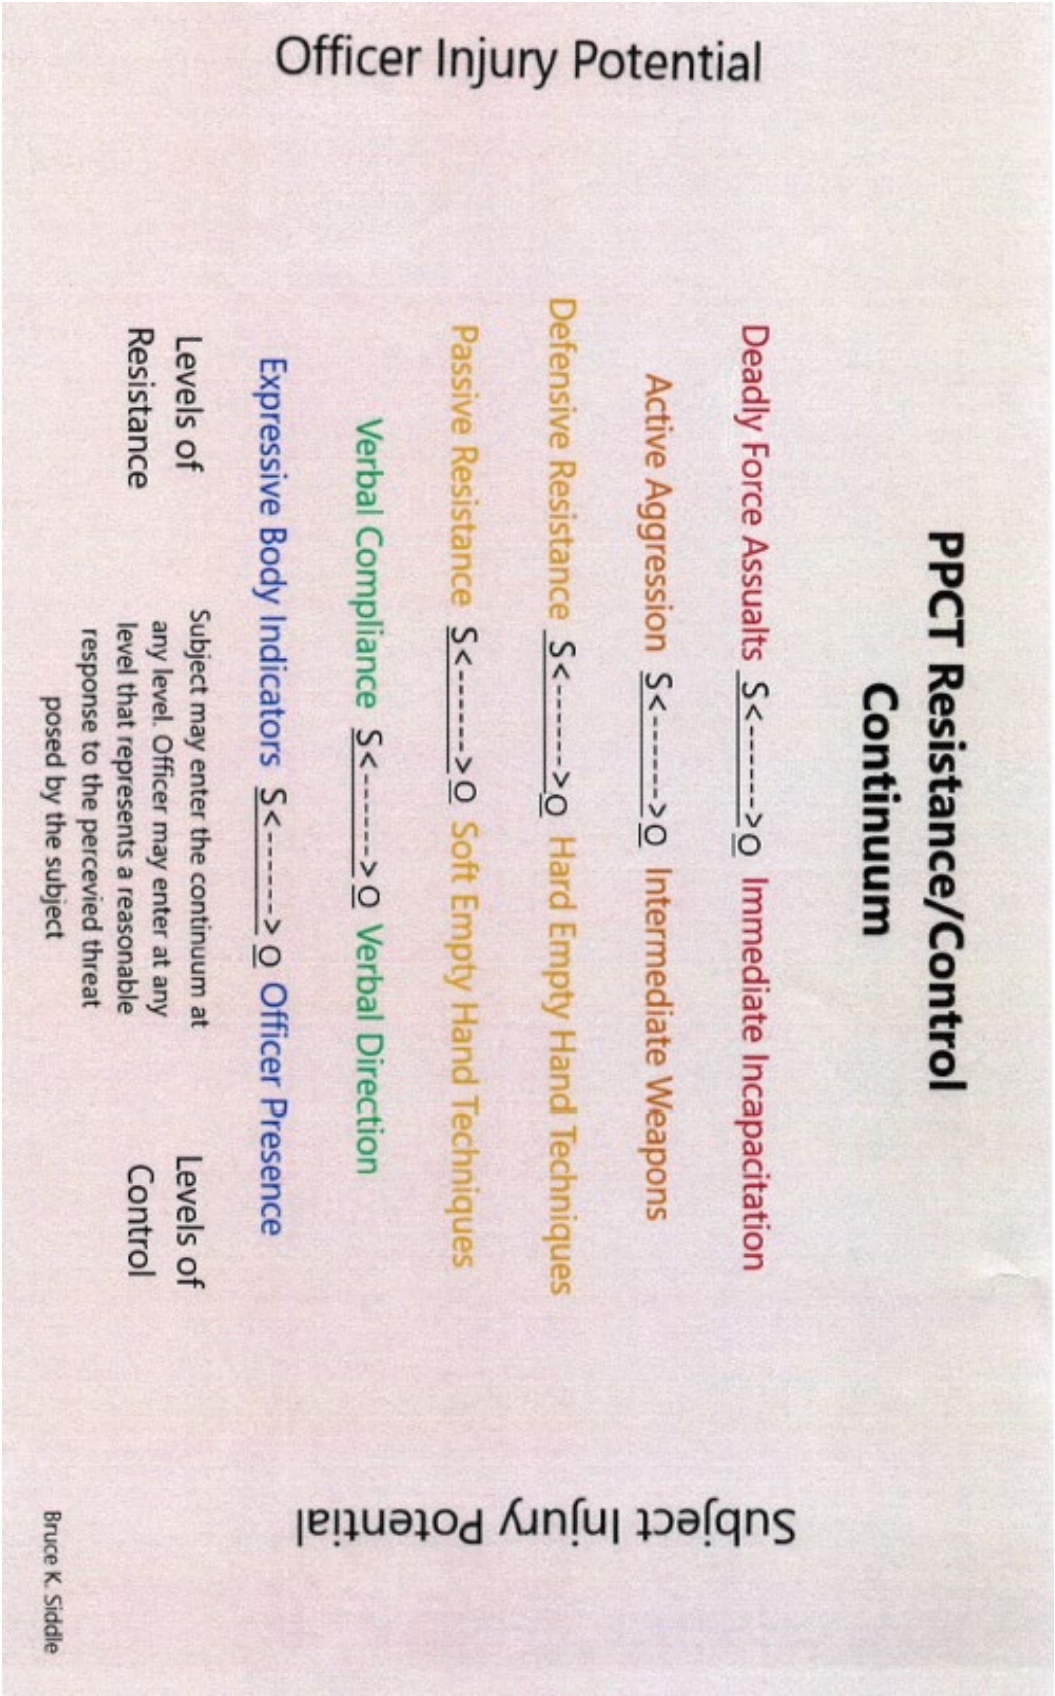 PPCT Resistance/Control
Continuum
Officer Injury Potential
Deadly Force Assualts S<------>O Immediate Incapacitation
Active Aggression S<------>O Intermediate Weapons
Defensive Resistance S<------>O Hard Empty Hand Techniques
Passive Resistance S<------>O Soft Empty Hand Techniques
Verbal Compliance S<------>O Verbal Direction
Expressive Body Indicators S<------> O Officer Presence
Subject Injury Potential
Levels of
Resistance
Subject may enter the continuum at
any level. Officer may enter at any
level that represents a reasonable
response to the percevied threat
posed by the subject
Levels of
Control
Bruce K. Siddle